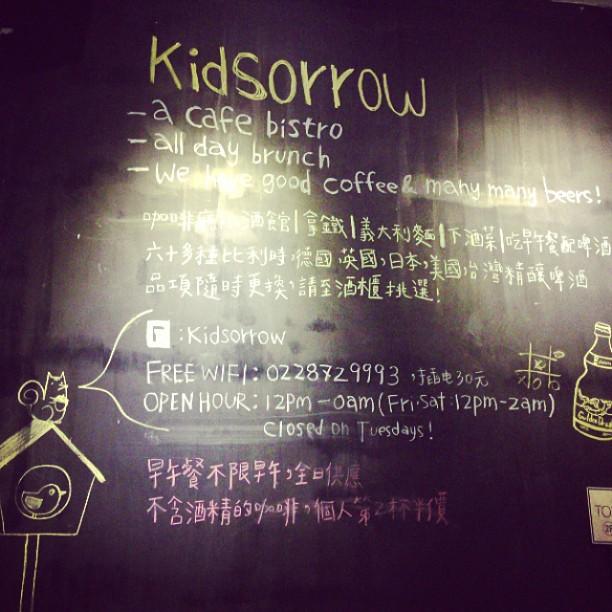 Kidsorrow
- a cafe bistro
- all day brunch
- We have good coffee & many many beers!
咖啡廳 酒館|拿鐵|義大利麵|下酒菜|吃早午餐配啤酒
六十多種比利時,德國,英國,日本,美國,台灣精釀啤酒
品項隨時更換,請至酒櫃挑選!
:Kidsorrow
FREE WIFI: 0228729993,插电30元
OPEN HOUR: 12pm-0am(Fri.Sat:12pm-2am)
Closed on Tuesdays!
早午餐不限早午,全日供應
不含酒精的咖啡,個人第2杯半價
TO